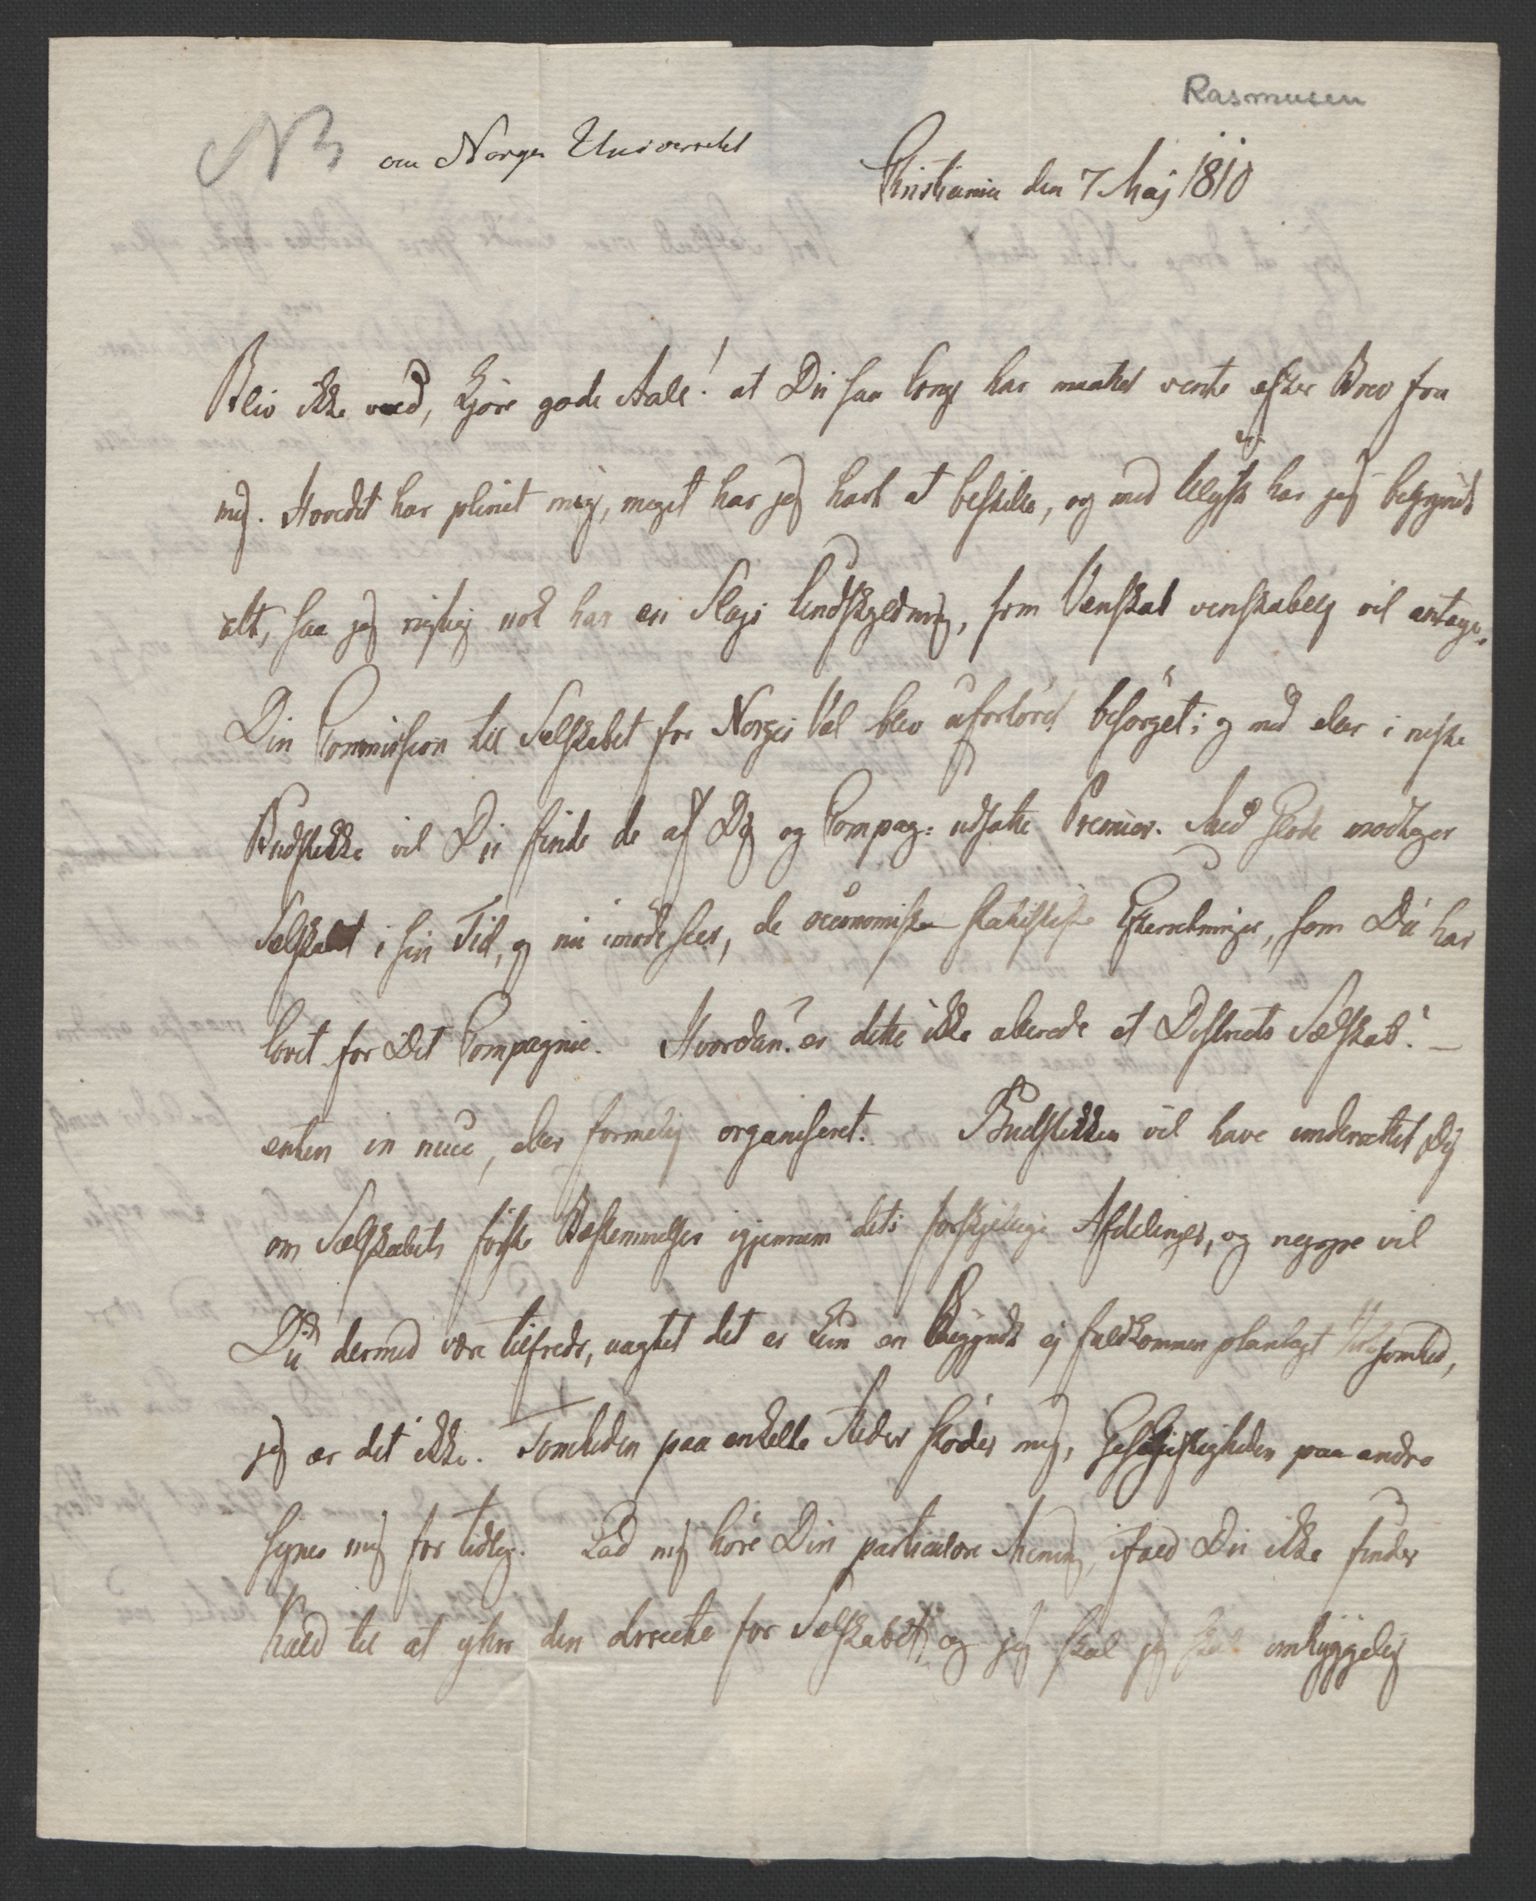 Rasmusen
NB om Norges Universitet
Christiania den 7 Maj 1810
Bliv ikke vred, kjöre gode Aall! at Du saa længe har maattet vente efter Brev fra
mig. Hovedet har plinet mig, meget har jeg havt at bestille, og med Ulyst har jeg begyndt
alt, saa jeg rigtig nok har en Slags Undskyldning, som Venskab venskabelig vil antage.
Din Commission til Selskabet for Norges Vel blev ufortövet besörget; og med eller i neste
Budstikke vil Du finde de af Dig og Compag: udsatte Premier. Med Glæde modtager
Selskabet i sin Tid, og nu imödeseer, de oeconomiske statistiske Efterretninger, som Du har
lovet for Dit Compagnie. Hvordan? er dette ikke allerede et Districts Selskab? —
enten in nuce, eller formelig organiseret. Budstikken vil have underrettet Dig
om Selskabets förste Bestemmelser igjennem dets forskjellige Afdelinger, og neppe vil
Du dermed være tilfreds, uagtet det er kun en Begyndt ej fuldkommen planlagt Virksomhed,
jeg er det ikke. Tomheden paa enkelte Steder stöder mig, paa andre
synes mig for tidlig. Lad mig höre Din particulære Mening, ifald Du ikke finder
Kald til at yttre den directe for Selskabet, og jeg skal jeg skal omhyggelig